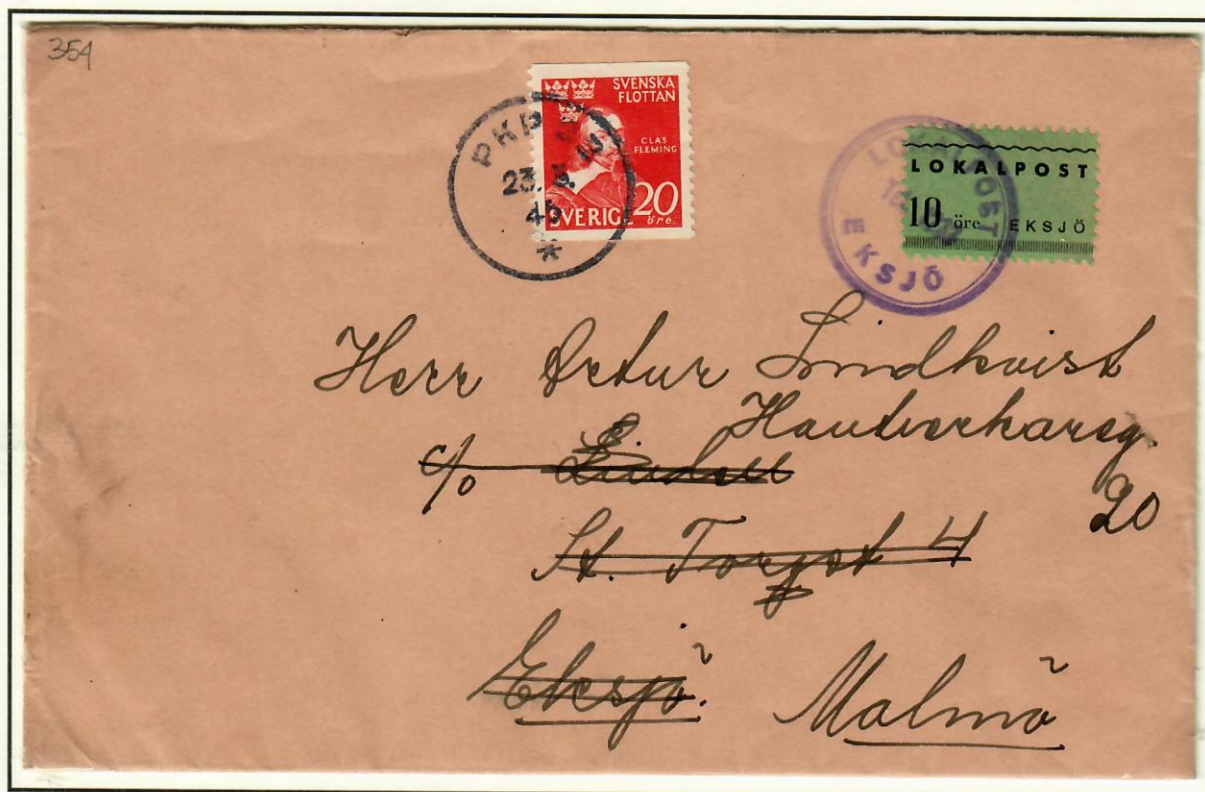 354
SVENSKA
FLOTTAN
CLAS
FLEMING
SVERIGE 20
öre
PKP
23. 5.
45
*
LOKALPOST
10 öre EKSJÖ
LOKALPOST
EKSJÖ
Herr Artur Lindkvist
Hantverkareg.
20
c/o
St. Torget 4
Eksjö. Malmö